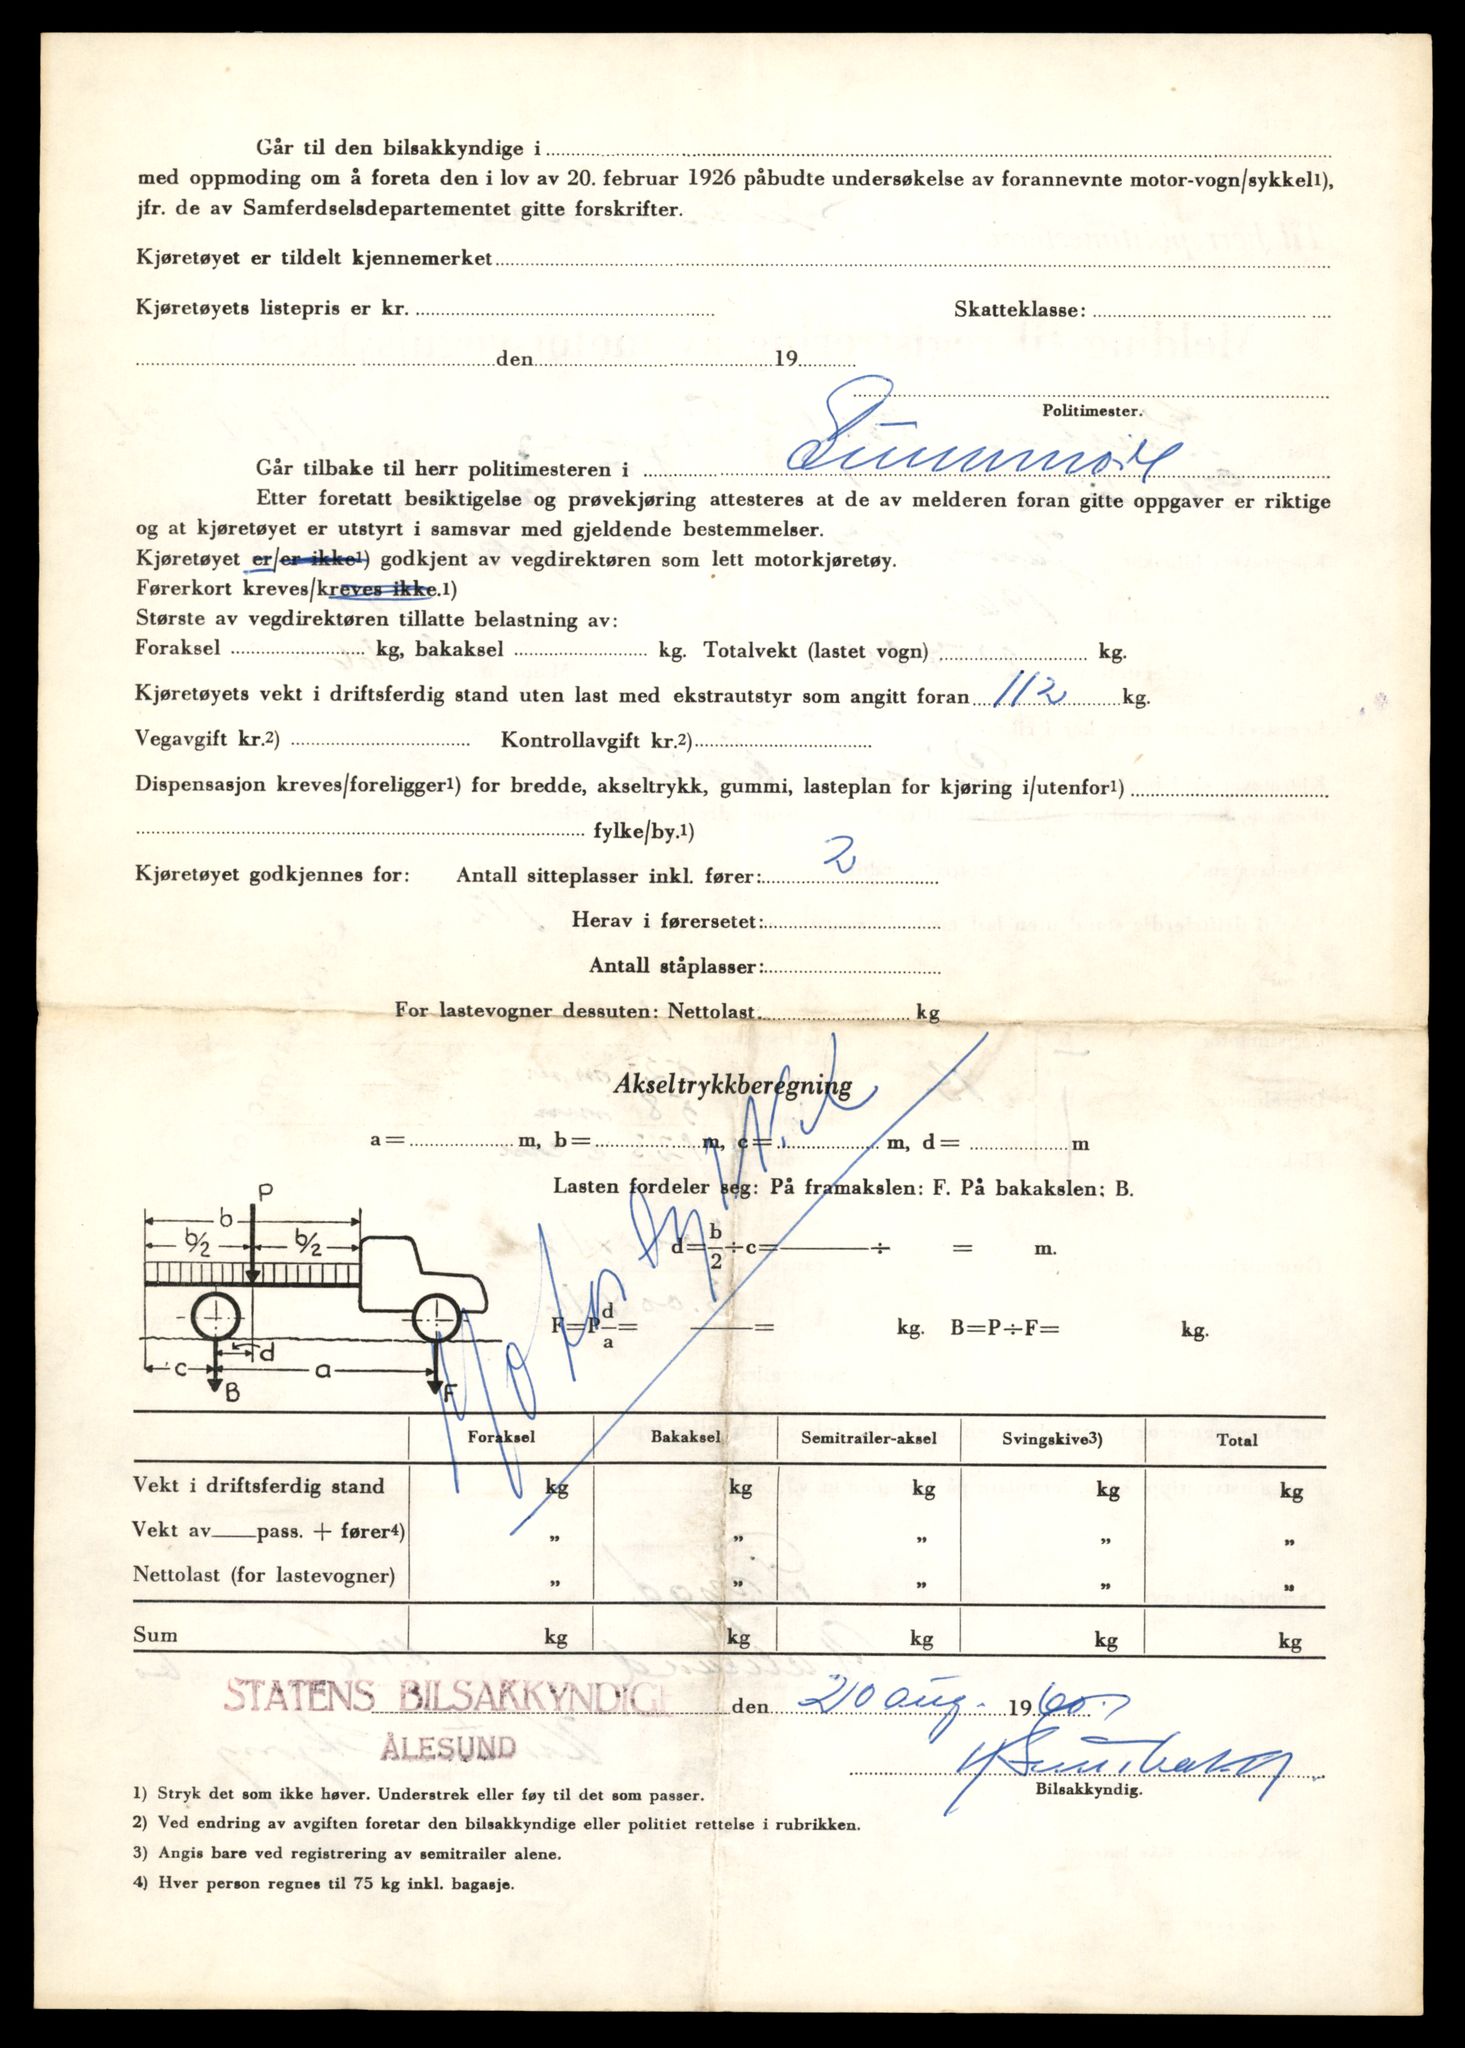 Går til den bilsakkyndige i
med oppmoding om å foreta den i lov av 20. februar 1926 påbudte undersøkelse av forannevnte motor-vogn/sykkel1),
jfr. de av Samferdselsdepartementet gitte forskrifter.
Kjøretøyet er tildelt kjennemerket
Kjøretøyets listepris er kr. Skatteklasse:
den 19
Politimester.
Går tilbake til herr politimesteren i Sunnmøre
Etter foretatt besiktigelse og prøvekjøring attesteres at de av melderen foran gitte oppgaver er riktige
og at kjøretøyet er utstyrt i samsvar med gjeldende bestemmelser.
Kjøretøyet er/er ikke1) godkjent av vegdirektøren som lett motorkjøretøy.
Førerkort kreves/kreves ikke.1)
Største av vegdirektøren tillatte belastning av:
Foraksel kg, bakaksel kg. Totalvekt (lastet vogn) kg.
Kjøretøyets vekt i driftsferdig stand uten last med ekstrautstyr som angitt foran 112 kg.
Vegavgift kr.2) Kontrollavgift kr.2)
Dispensasjon kreves/foreligger1) for bredde, akseltrykk, gummi, lasteplan for kjøring i/utenfor1)
fylke/by.1)
Kjøretøyet godkjennes for: Antall sitteplasser inkl. fører: 2
Herav i førersetet:
Antall ståplasser:
For lastevogner dessuten: Nettolast kg
Akseltrykkberegning
a= m, b= m, c= m, d= m
Lasten fordeler seg: På framakslen: F. På bakakslen: B.
d=b/2÷c= ÷ = m.
F=P d/a= = kg. B=P÷F= kg.
P
b
b/2 b/2
d
c a
B F
Motorsykkel
Foraksel Bakaksel Semitrailer-aksel Svingskive3) Total
Vekt i driftsferdig stand kg kg kg kg kg
Vekt av pass. + fører4) „ „ „ „ „
Nettolast (for lastevogner) „ „ „ „ „
Sum kg kg kg kg kg
STATENS BILSAKKYNDIGE den 20 aug. 1960
ÅLESUND
Bilsakkyndig.
1) Stryk det som ikke høver. Understrek eller føy til det som passer.
2) Ved endring av avgiften foretar den bilsakkyndige eller politiet rettelse i rubrikken.
3) Angis bare ved registrering av semitrailer alene.
4) Hver person regnes til 75 kg inkl. bagasje.